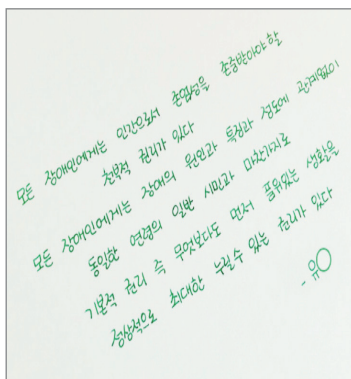 모든 장애인에게는 인간으로서 존엄성을 존중받아야 할
천부적 권리가 있다
모든 장애인에게는 장애의 원인과 특징과 정도에 관계없이
동일한 연령의 일반 시민과 마찬가지로
기본적 권리 즉 무엇보다도 먼저 품위있는 생활을
정상적으로 최대한 누릴 수 있는 권리가 있다